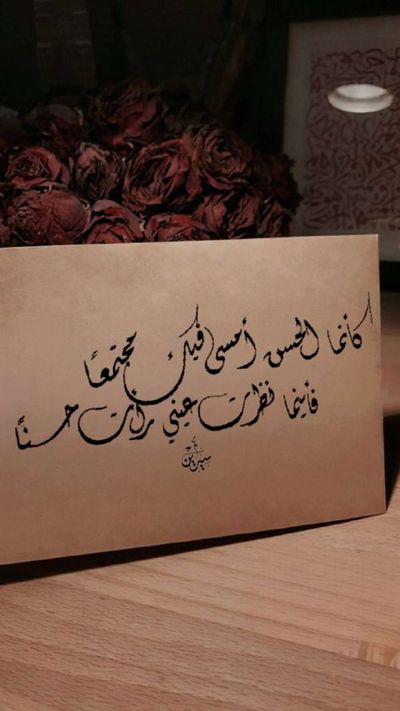 كأنما الحسن أمسى فيك مجتمعًا
فأينما نظرت عيني رأت حسنًا